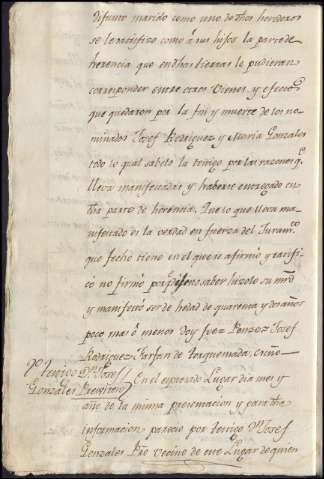 difunto marido como uno de dhos herederos
se le satisfizo como à sus hijos la parte de
herencia que en dhas tierras le pudieran
corresponder entre otros vienes y efectos
que quedaron por la fin y muerte de los no-
minados Josef Rodriguez y Maria Gonzales
todo lo qual sabe lo tengo por las razones q.
lleva manifestadas y haberse entregado en
dha parte de herencia. Que lo que lleva ma-
nifestado es la verdad en fuerza del Juram.to
que fecho tiene en el que se afirmó y ratifi-
có no firmó por q. dijo no saber hizolo su mrd
y manifestó ser de hedad de quarenta y dos años
poco mas ó menos doy fee
Josef
Rodriguez Farfan de
Taquemada
testigo Dn Josef
Gonzales Presvitero
En el expresado Lugar dia mes y
año de la misma presentacion y para dha
informacion parecio por testigo Dn Josef
Gonzales Pro vecino de este Lugar de quien